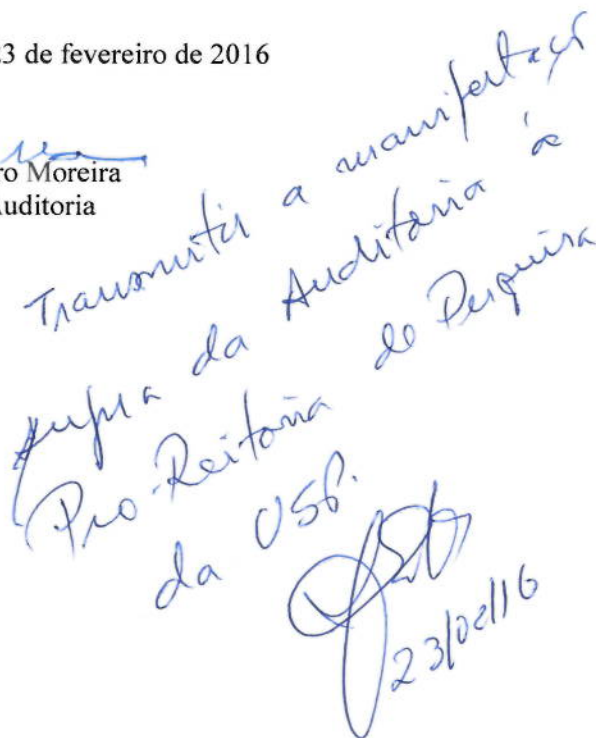 3 de fevereiro de 2016
ro Moreira
Auditoria
Transmitir a manifestaçã
supra da Auditoria à
Pro-Reitoria de Pesquisa
da USP.
23/02/16